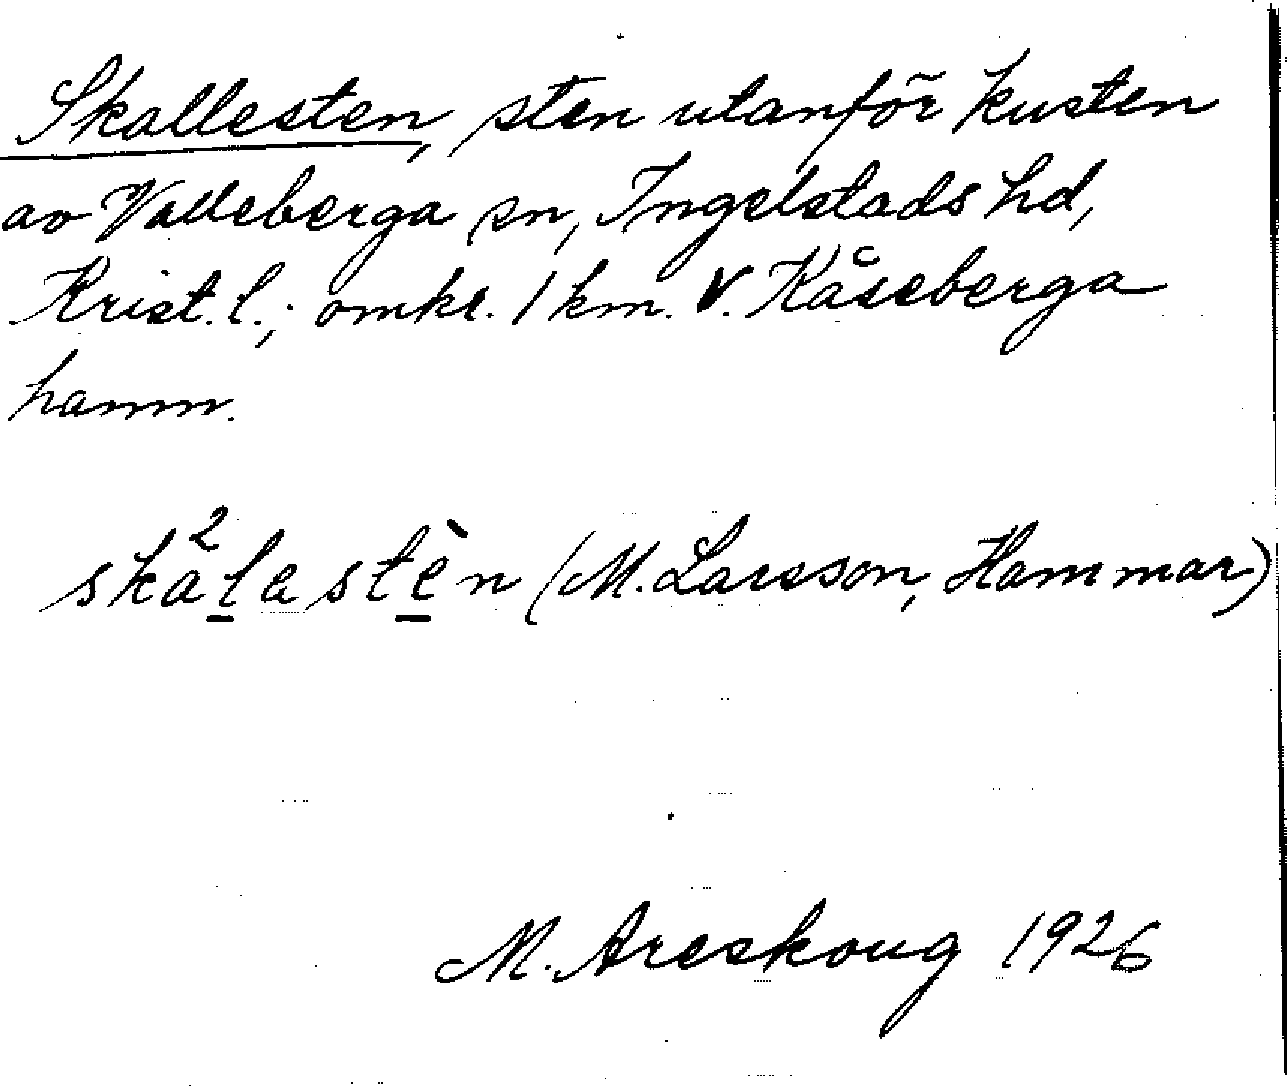 Skallesten, sten utanför kusten
av Valleberga sn, Ingelstads hd,
Krist. l.; omkr. 1 km. V. Kåseberga
hamn.
ska²l̲est̲èn (M. Larsson, Hammar)
M. Areskoug 1926